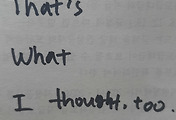 That's
What
I thought, too.